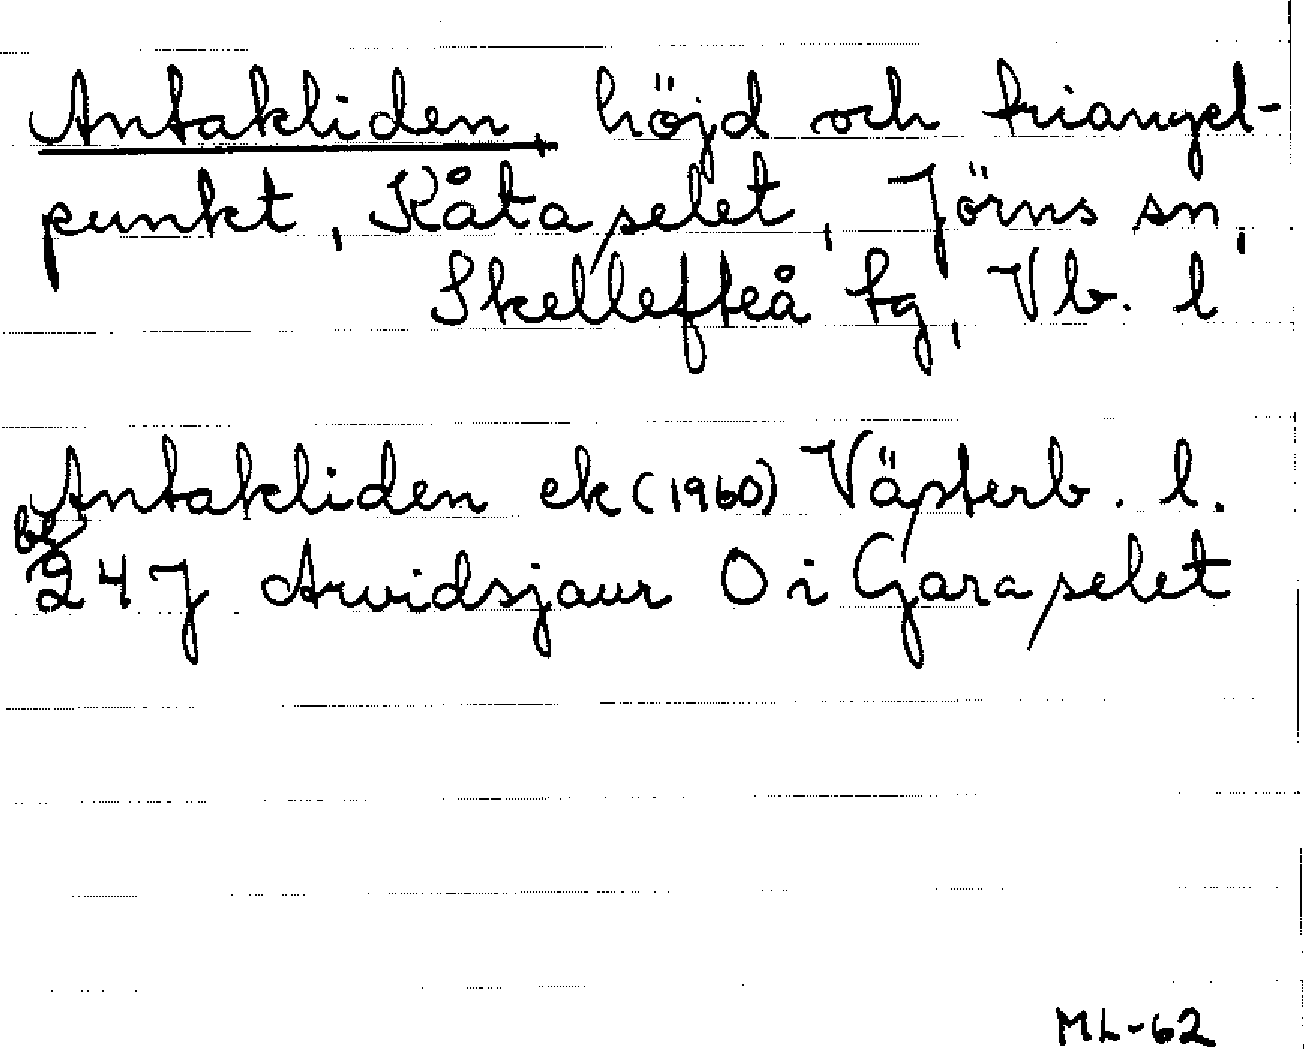 Antakliden, höjd och triangel-
punkt, Kåtaselet, Jörns sn,
Skellefteå tg, Vb. l
Antakliden ek (1960) Västerb. l.
bl 24 J Arvidsjaur O i Garaselet
ML-62